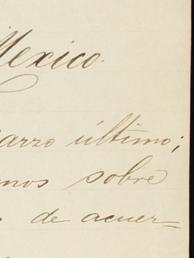 Mexico.
arzo último;
nos sobre
de acuer-